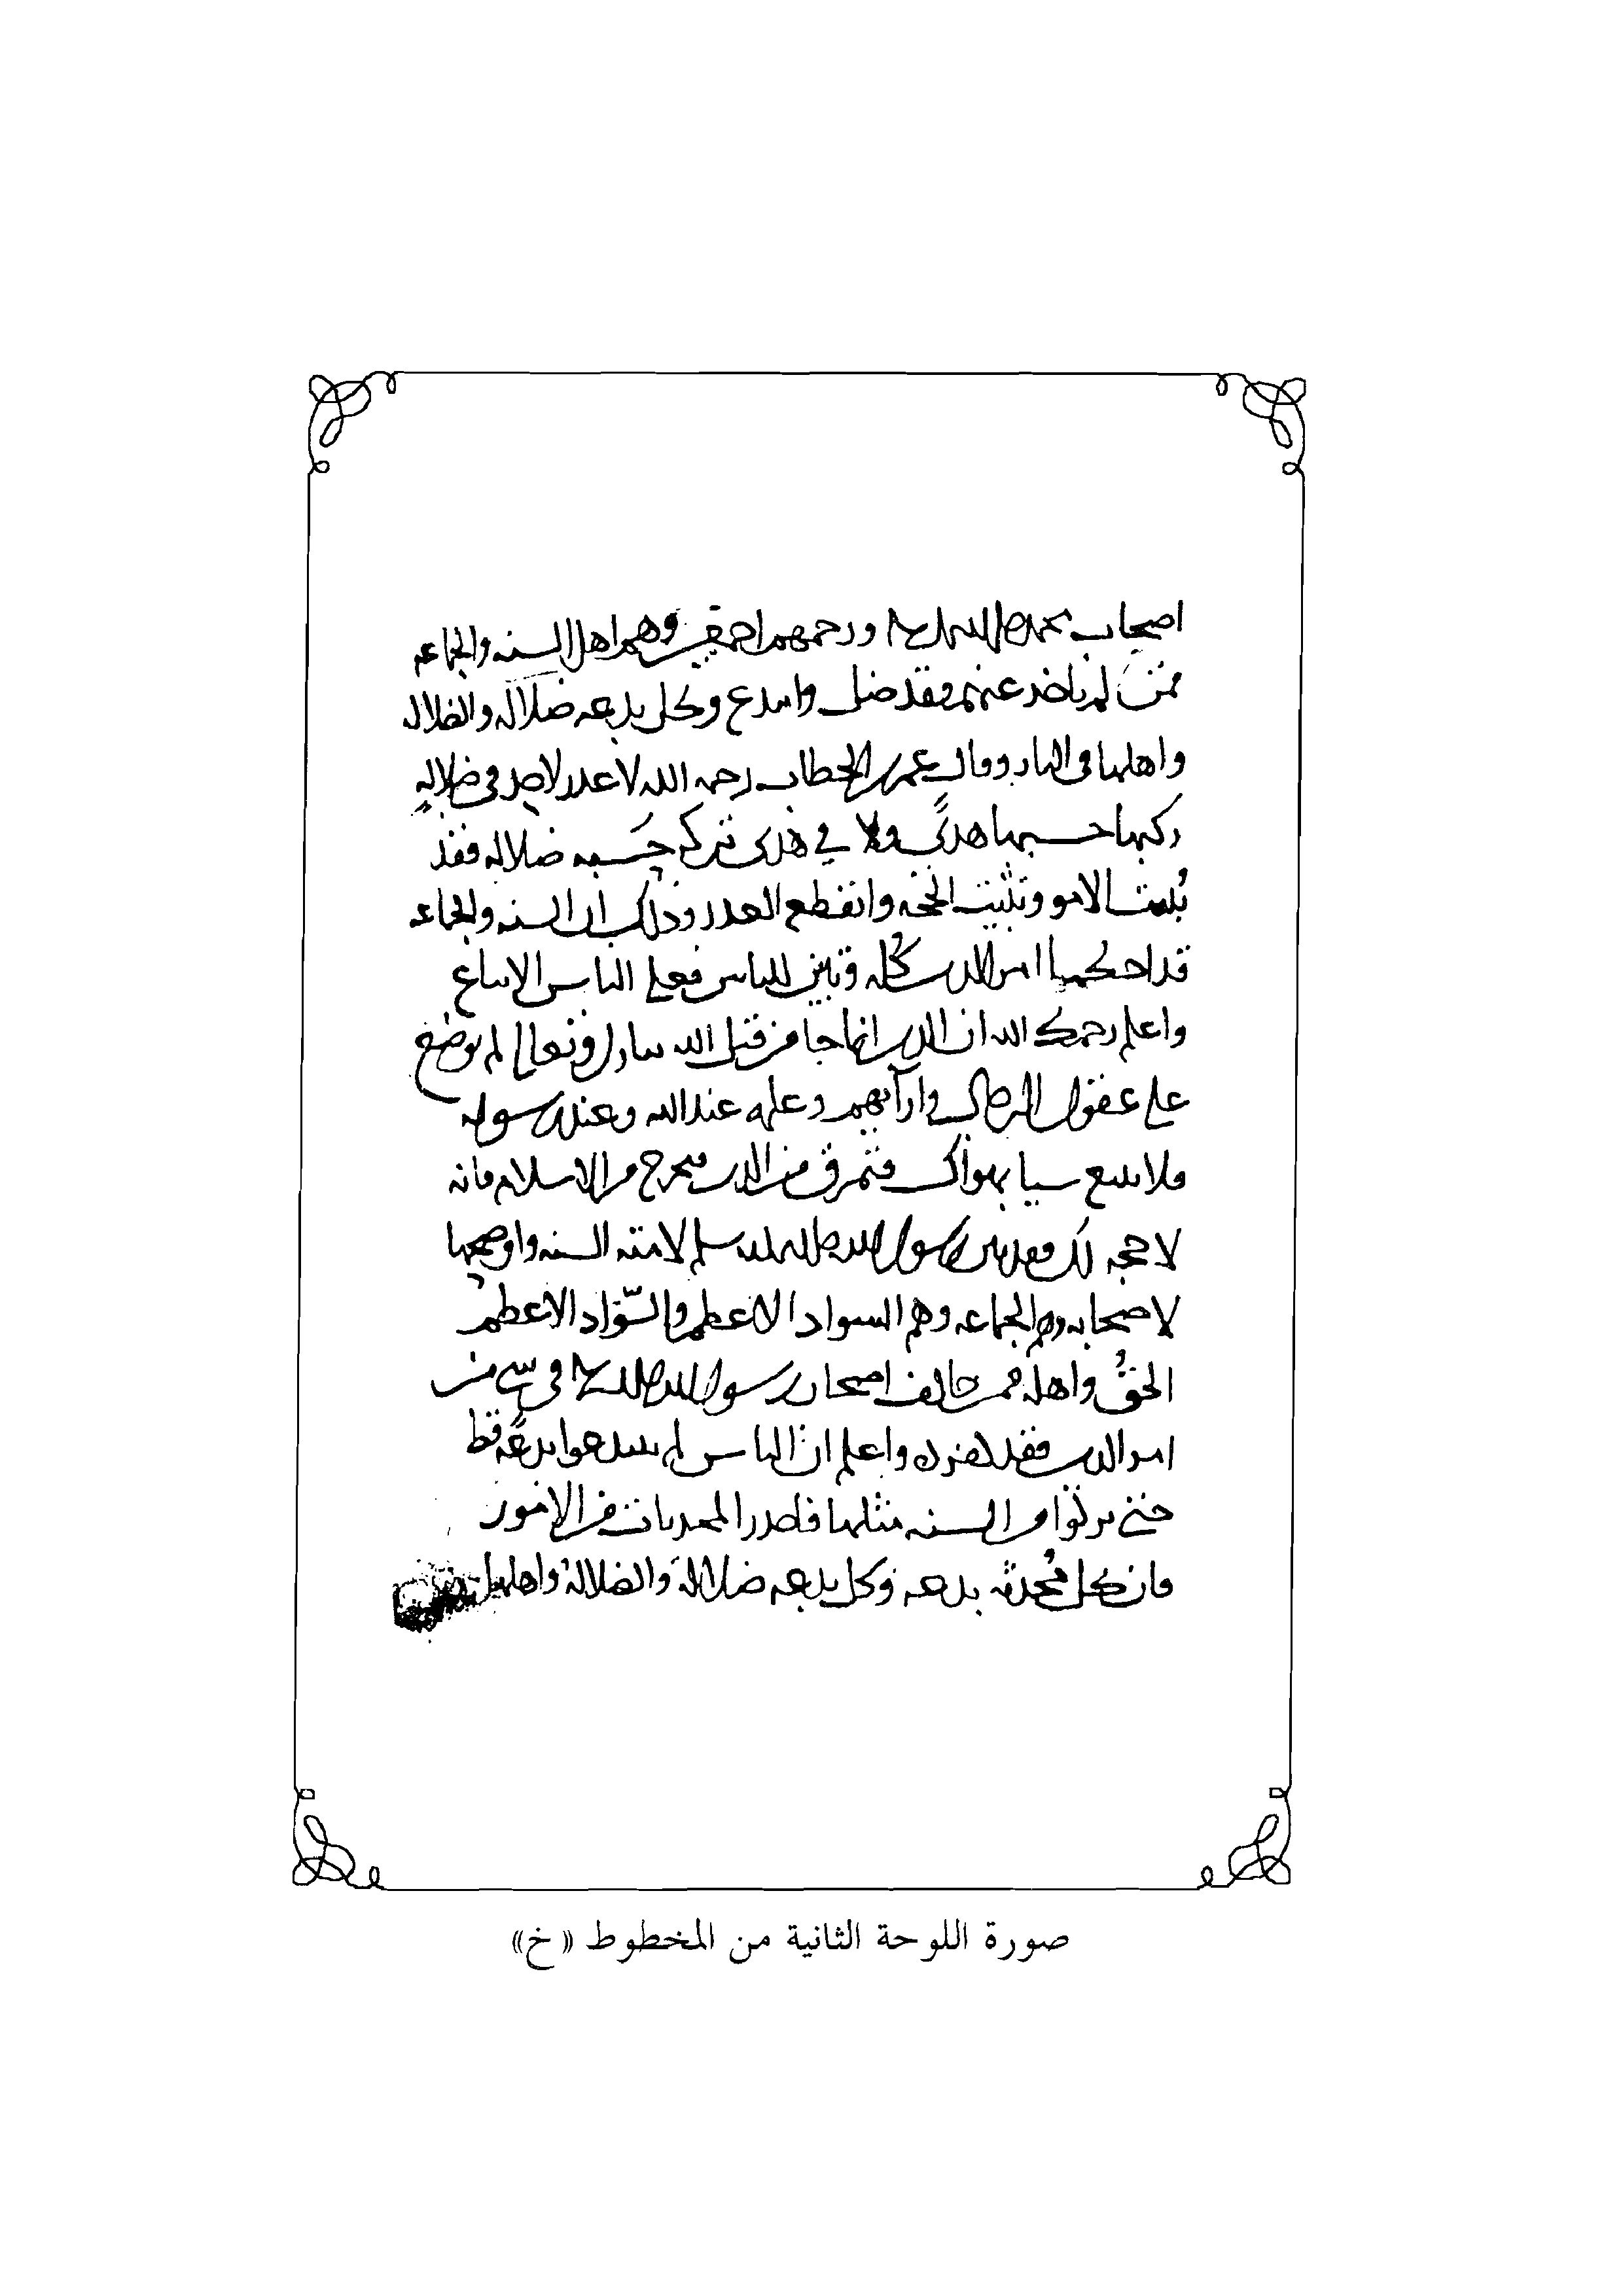 اصحاب محمد صلى الله عليه وسلم ورحمهم اجمعين وهم اهل السنه والجماعه
فمن لم ياخذ عنهم فقد ضل وابتدع وكل بدعه ضلاله والضلاله
واهلها في النار وقال عمر بن الخطاب رحمه الله لا عذر لاحد في ضلاله
ركبها حسبها هدى ولا في هدى تركه حسبه ضلاله فقد
بُينت الامور وتثبتت الحجه وانقطع العذر وذلك ان السنه والجماعه
قد احكما امر الدين كله وتبين للناس فعلى الناس الاتباع
واعلم رحمك الله ان الدين انما جا من قبل الله تبارك وتعالى لم يوضع
على عقول الرجال وارآيهم وعلمه عند الله وعند رسوله
فلا تتبع شيا بهواك فتمرق من الدين فتخرج من الاسلام فانه
لا حجه لك فقد بين رسول الله صلى الله عليه وسلم لامته السنه واوضحها
لاصحابه وهم الجماعه وهم السواد الاعظم والسّواد الاعظم
الحقُ واهله فمن خالف اصحاب رسول الله صلى الله عليه وسلم في شي من
امر الدين فقد كفر واعلم ان الناس لم يبتدعوا بدعةً قط
حتى تركوا من السنه مثلها فاحذر المحدثات من الامور
فان كل مُحدثه بدعه وكل بدعه ضلالة والضلالة واهلها
صورة اللوحة الثانية من المخطوط «خ»